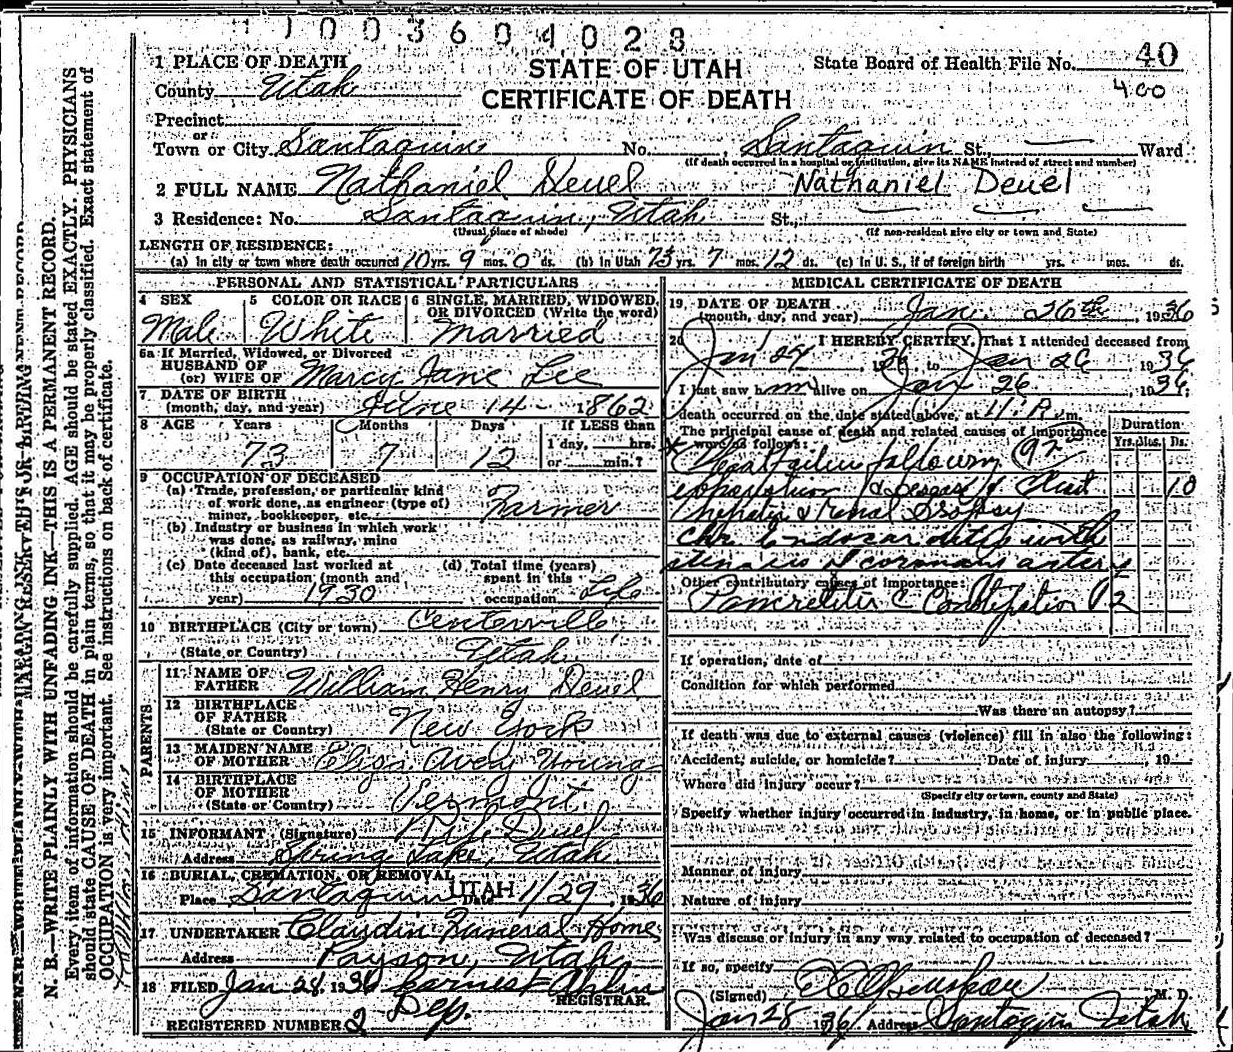 1003604028
1 PLACE OF DEATH
STATE OF UTAH
State Board of Health File No. 40
County Utah
CERTIFICATE OF DEATH
400
Precinct
or
Town or City Santaquin No. , Santaquin St., Ward
(If death occurred in a hospital or institution, give its NAME instead of street and number)
2 FULL NAME Nathaniel Deuel Nathaniel Deuel
3 Residence: No. Santaquin, Utah St.,
(Usual place of abode) (If non-resident give city or town and State)
LENGTH OF RESIDENCE:
(a) In city or town where death occurred 10 yrs. 9 mos. 0 ds. (b) In Utah 73 yrs. 7 mos. 12 ds. (c) In U. S., if of foreign birth yrs. mos. ds.
PERSONAL AND STATISTICAL PARTICULARS
4 SEX
Male
5 COLOR OR RACE
White
6 SINGLE, MARRIED, WIDOWED, OR DIVORCED (Write the word)
Married
6a If Married, Widowed, or Divorced
HUSBAND OF
(or) WIFE OF Marcy Jane Lee
7 DATE OF BIRTH
(month, day, and year) June 14 - 1862
8 AGE Years Months Days If LESS than
1 day, hrs.
73 7 12 or min.?
9 OCCUPATION OF DECEASED
(a) Trade, profession, or particular kind
of work done, as engineer (type of)
miner, bookkeeper, etc. Farmer
(b) Industry or business in which work
was done, as railway, mine
(kind of), bank, etc.
(c) Date deceased last worked at
this occupation (month and
year) 1930
(d) Total time (years)
spent in this
occupation Life
10 BIRTHPLACE (City or town) Centerville
(State or Country) Utah
PARENTS
11 NAME OF
FATHER William Henry Deuel
12 BIRTHPLACE
OF FATHER
(State or Country) New York
13 MAIDEN NAME
OF MOTHER Eliza Avery Young
14 BIRTHPLACE
OF MOTHER
(State or Country) Vermont
15 INFORMANT (Signature) Deuel
Address Spring Lake, Utah
16 BURIAL, CREMATION, OR REMOVAL
Place Santaquin UTAH Date 1/29, 1936
17 UNDERTAKER Claudin Funeral Home
Address Payson, Utah
18 FILED Jan 28, 1936 Earnest Ahlin
Dep. REGISTRAR.
REGISTERED NUMBER 2
MEDICAL CERTIFICATE OF DEATH
19 DATE OF DEATH
(month, day, and year) Jan. 26th, 1936
20 I HEREBY CERTIFY, That I attended deceased from
Jan 24, 1936, to Jan 26 1936
I last saw him alive on Jan 26, 1936,
death occurred on the date stated above, at 11 P. m.
The principal cause of death and related causes of importance
were as follows:
Duration
Yrs. Mos. Ds.
Heart failure following
of Chest 10
hepatic & renal Dropsy
Chr Endocarditis with
stenosis of coronary artery
Other contributory causes of importance:
Pancreatitis c Constipation 12
If operation, date of
Condition for which performed
Was there an autopsy?
If death was due to external causes (violence) fill in also the following:
Accident, suicide, or homicide? Date of injury , 19
Where did injury occur?
(Specify city or town, county and State)
Specify whether injury occurred in industry, in home, or in public place.
Manner of injury
Nature of injury
Was disease or injury in any way related to occupation of deceased?
If so, specify
(Signed) M. D.
Jan 28 1936 Address Santaquin Utah
N. B.—WRITE PLAINLY WITH UNFADING INK—THIS IS A PERMANENT RECORD.
Every item of information should be carefully supplied. AGE should be stated EXACTLY. PHYSICIANS
should state CAUSE OF DEATH in plain terms, so that it may be properly classified. Exact statement of
OCCUPATION is very important. See instructions on back of certificate.